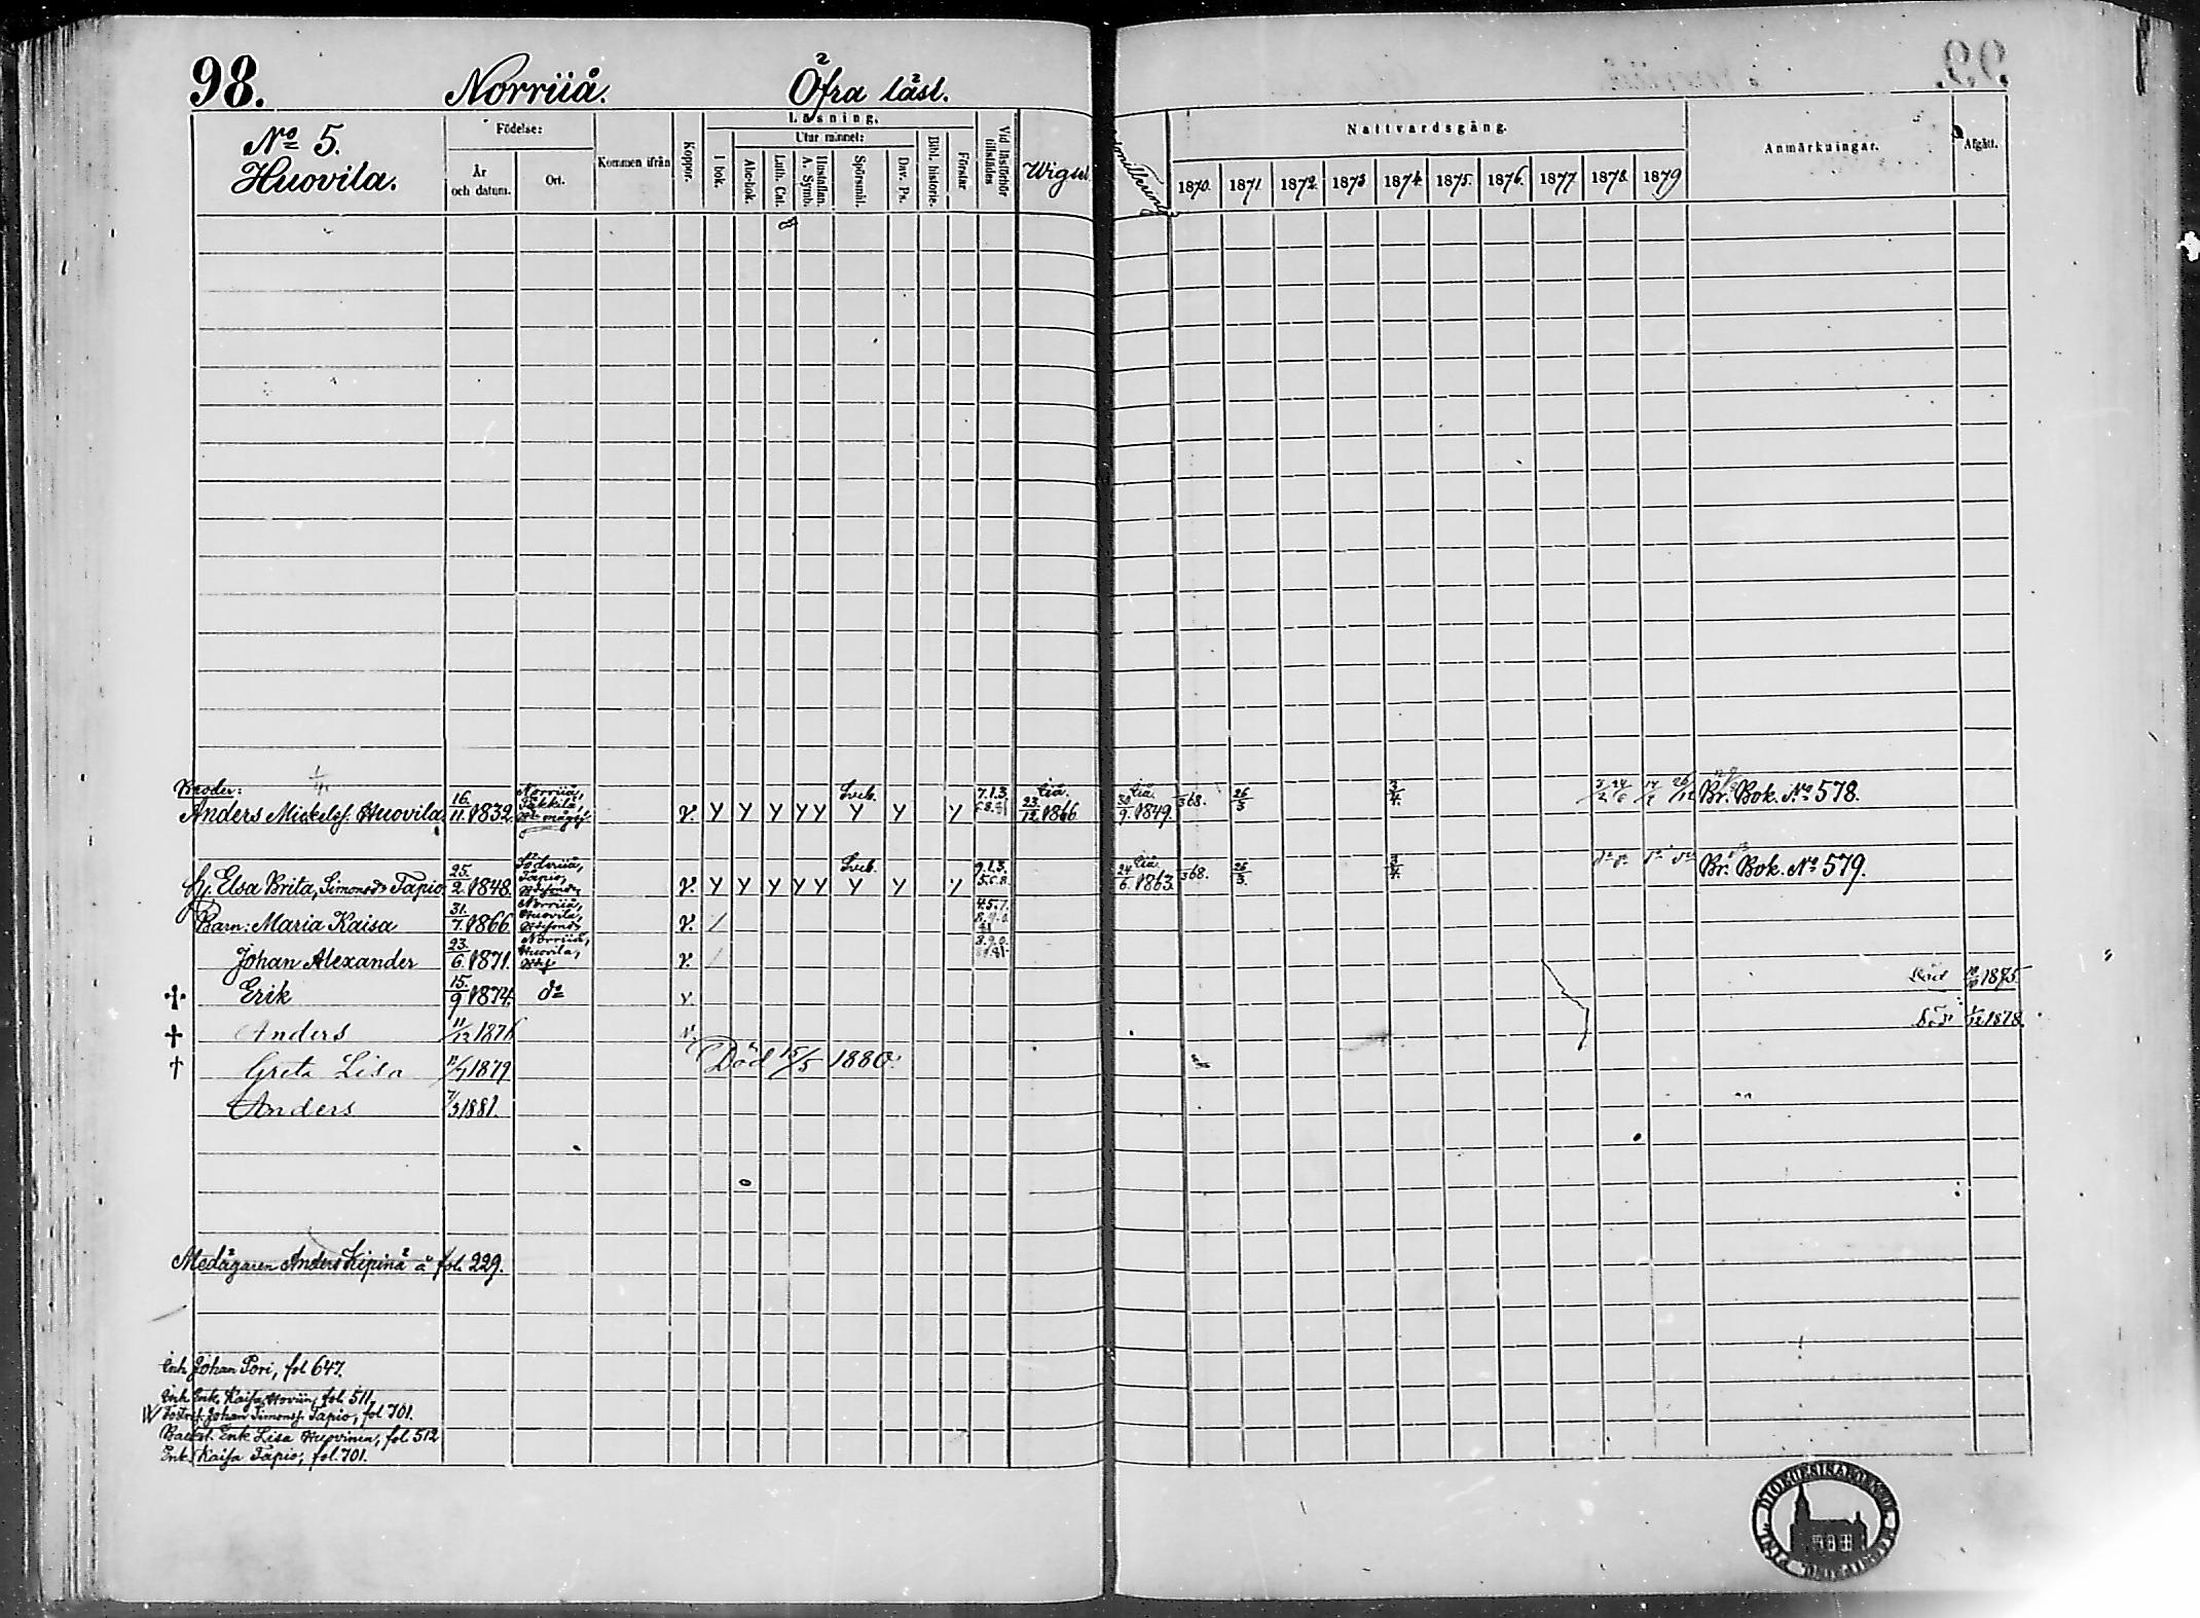 98.
Norriiå.
Öfra läsl.
No 5.
Huovila.
Födelse:
År
och datum.
Ort.
Kommen ifrån
Koppor.
Läsning.
I bok.
Utur minnet:
Abc-bok.
Luth. Cat.
Hustaflan.
A. Symb.
Spörsmål.
Dav. Ps.
Bibl. historie.
Förstår
Vid läsförhör
tillstädes
Wigul
Nattvardsgång.
1870. 1871 1872. 1873 1874. 1875. 1876. 1877. 1878. 1879
Anmärkningar.
Afgått.
Broder:
Anders Mickelss. Huovila 16/11 1832. Norriiå, v. y y y y y y y y 23/12 1866 30/9 1849. 368. 26/3 Br. Bok. No 578.
Hu. Elsa Brita, Simonsdr Tapio 25/2 1848. Söderiiå, Tapio, v. y y y y y y y y 24/6 1863. 368. 26/3 Br. Bok. No 579.
Barn: Maria Kaisa 31/7 1866 Norriiå, Huovila, v.
Johan Alexander 23/6 1871. Norriiå, Huovila, v.
Erik 15/9 1874. do v Död 1875.
Anders 11/12 1876 Död 1878.
Greta Lisa 1879 Död 15/5 1880.
Anders 7/3 1881
Medägaren Anders Kipinä å fol. 229.
Inh Johan Pori, fol 647.
Inh Enk. Kaisa, fol. 511,
Johan Simonss. Tapio, fol 701.
Backst. Enk Lisa Huovinen, fol. 512
Enk. Kaisa Tapio, fol. 701.